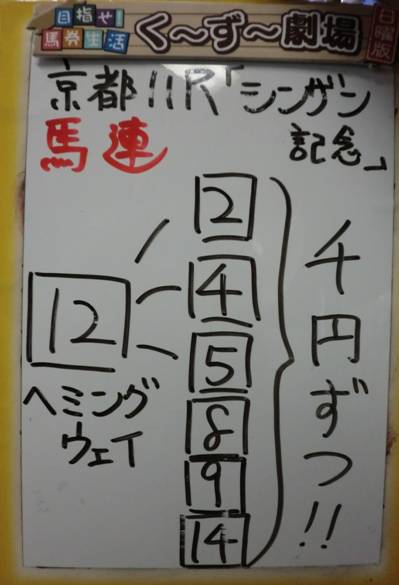 目指せ!
馬券生活
く〜ず〜劇場
日曜版
京都11R「シンザン
記念」
馬連
12
ヘミング
ウェイ
2
4
5
8
9
14
千円ずつ!!